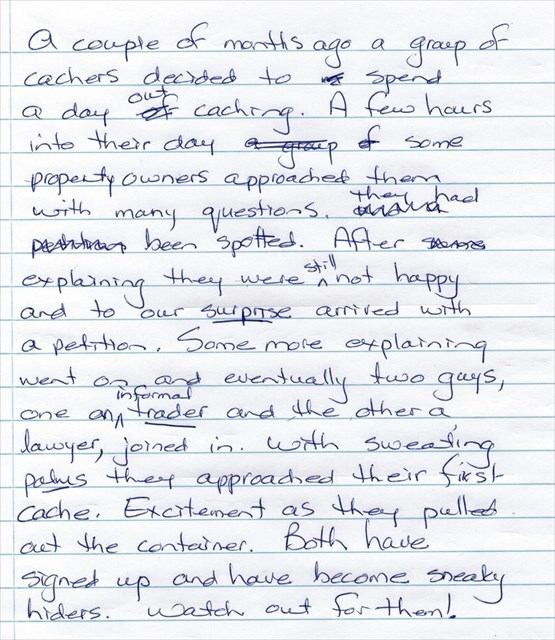 A couple of months ago a group of
cachers decided to spend
a day out caching. A few hours
into their day a group of some
property owners approached them
with many questions. they had
been spotted. After
explaining they were still not happy
and to our surprise arrived with
a petition. Some more explaining
went on and eventually two guys,
one an informal trader and the other a
lawyer, joined in. With sweating
palms they approached their first
cache. Excitement as they pulled
out the container. Both have
signed up and have become sneaky
hiders. Watch out for them!